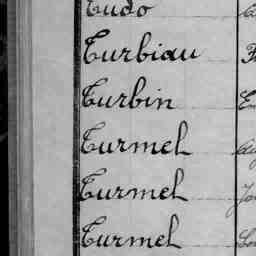 Tudo
Turbiau
Turbin
Turmel
Turmel
Turmel